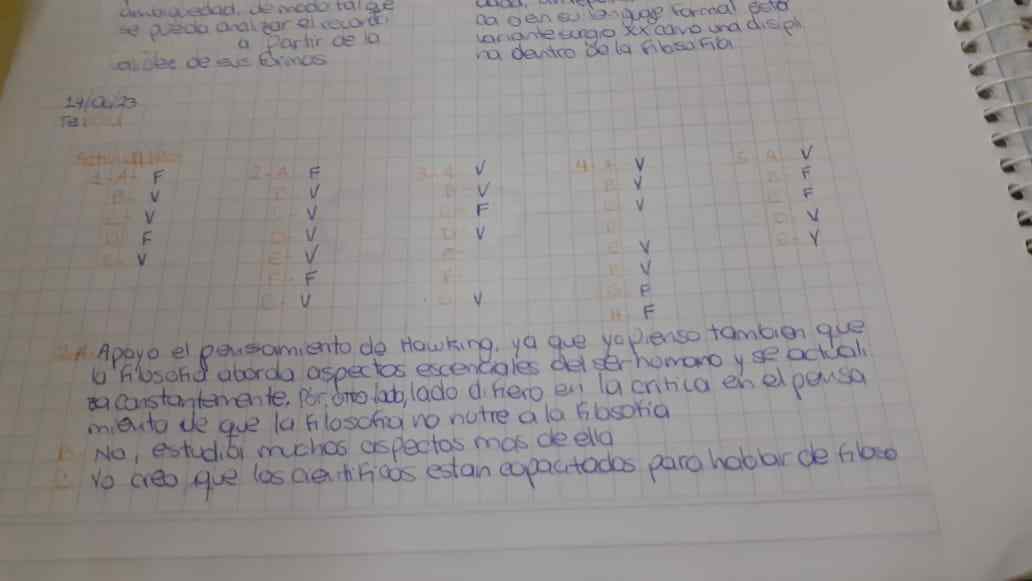 ambiguedad, de modo tal qe
se pueda analizar el
a partir de la
de sus formas
en su lenguage formal esta
variante surgio XX como una discipli
na dentro de la filosofia
14/04/23
1-A- F
B- V
C- V
D- F
E- V
2-A F
B V
C V
D V
E- V
F- F
G- V
3-A V
B V
C F
D V
E-
F-
G V
4-A V
B V
C V
D
E V
F V
G F
H F
5 A V
B- F
C F
D V
E- V
2 A- Apoyo el pensamiento de Hawking, ya que yo pienso tambien que
la filosofia aborda aspectos escenciales del ser humano y se actuali
za constantemente. Por otro lado, difiero en la critica en el pensa
miento de que la filosofia no nutre a la filosofia
B- No, estudia muchos aspectos mas de ella
C- Yo creo que los cientificos estan capacitados para hablar de filoso